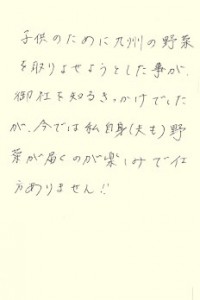 子供のために九州の野菜
を取りよせようとした事が、
御社を知るきっかけでした
が、今では私自身(夫も)野
菜が届くのが楽しみで仕
方ありません!!